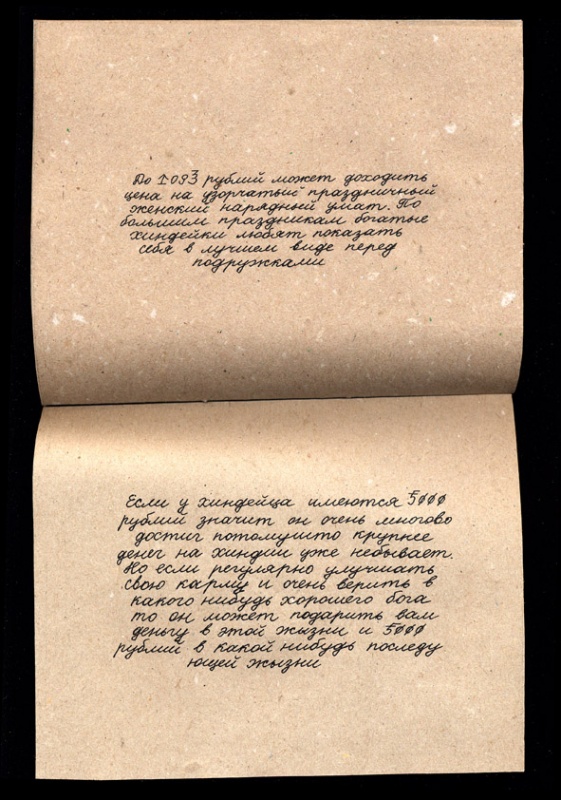 До 1093 рублий может доходить
цена на узорчатый праздничный
женский нарядный умат. По
большим праздникам богатые
хиндейки любят показать
себя в лучшем виде перед
подружками
Если у хиндейца имеются 5000
рублий значит он очень многово
достиг потомушто крупнее
денег на хиндии уже небывает.
Но если регулярно улучшать
свою карму и очень верить в
какого нибудь хорошего бога
то он может подарить вам
деньгу в этой жызни и 5000
рублий в какой нибудь последу
ющей жызни